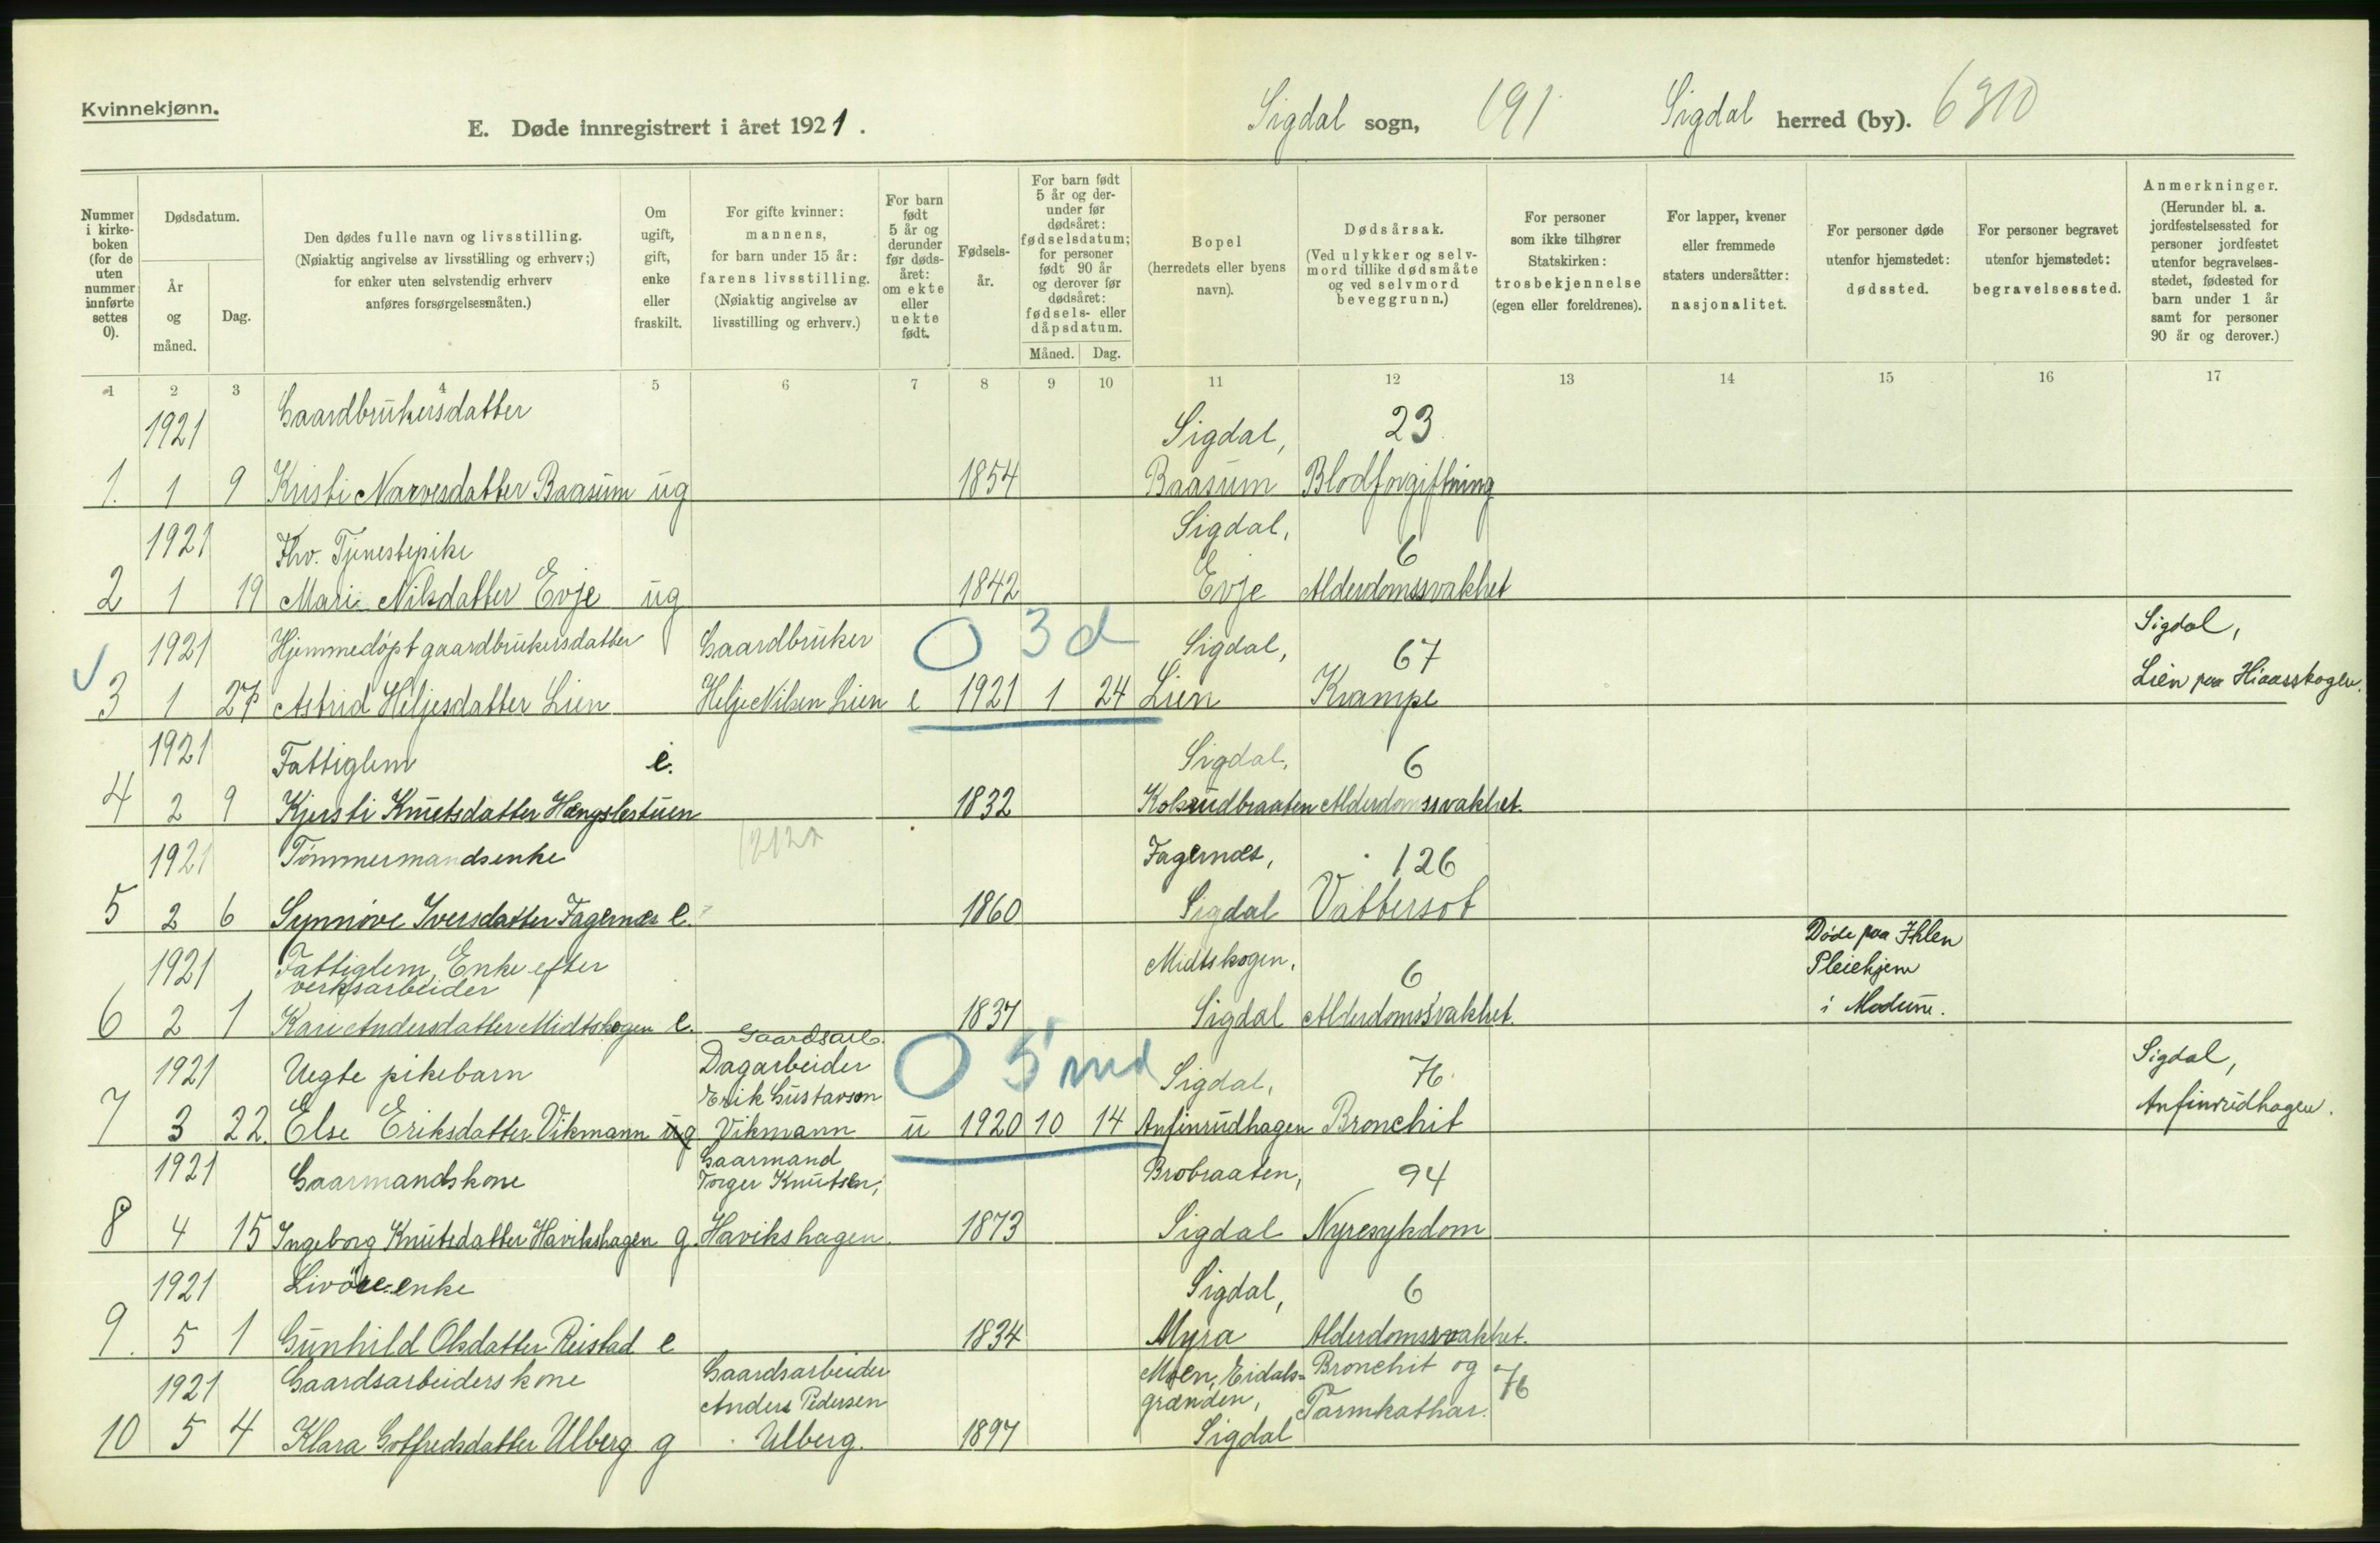 Kvinnekjønn.
E. Døde innregistrert i året 1921.
Sigdal sogn, 191 Sigdal herred (by). 6310
Nummer i kirkeboken (for de uten nummer innførte settes 0).
Dødsdatum.
År og måned.
Dag.
Den dødes fulle navn og livsstilling.
(Nøiaktig angivelse av livsstilling og erhverv;)
for enker uten selvstendig erhverv
anføres forsørgelsesmåten.)
Om ugift, gift, enke eller fraskilt.
For gifte kvinner:
mannens,
for barn under 15 år:
farens livsstilling.
(Nøiaktig angivelse av
livsstilling og erhverv.)
For barn født 5 år og derunder før dødsåret: om ekte eller uekte født.
Fødselsår.
For barn født 5 år og derunder før dødsåret: fødselsdatum; for personer født 90 år og derover før dødsåret: fødsels- eller dåpsdatum.
Måned. Dag.
Bopel
(herredets eller byens
navn).
Dødsårsak.
(Ved ulykker og selvmord tillike dødsmåte og ved selvmord beveggrunn.)
For personer
som ikke tilhører
Statskirken:
trosbekjennelse
(egen eller foreldrenes).
For lapper, kvener
eller fremmede
staters undersåtter:
nasjonalitet.
For personer døde
utenfor hjemstedet:
dødssted.
For personer begravet
utenfor hjemstedet:
begravelsessted.
Anmerkninger.
(Herunder bl. a.
jordfestelsessted for
personer jordfestet
utenfor begravelses-
stedet, fødested for
barn under 1 år
samt for personer
90 år og derover.)
1 2 3 4 5 6 7 8 9 10 11 12 13 14 15 16 17
1921 Gaardbrukersdatter Sigdal, 23
1. 1 9 Kristi Narvesdatter Baasum ug 1854 Baasum Blodforgiftning
1921 Fhv. Tjenestepike Sigdal, 6
2 1 19 Mari Nilsdatter Evje ug 1842 Evje Alderdomssvakhet
1921 Hjemmedøpt gaardbrukersdatter Gaardbruker 0 3 d Sigdal, 67 Sigdal,
3 1 27 Astrid Heljesdatter Lien Helje Nilsen Lien e 1921 1 24 Lien Krampe Lien paa Hiaasskogen.
1921 Fattiglem e. Sigdal, 6
4 2 9 Kjersti Knutsdatter Hængslestuen 1832 Kolsrudbraaten Alderdomssvakhet.
1921 Tømmermandsenke Fagernæs, 126
5 2 6 Synnøve Iversdatter Fagernæs e. 1860 Sigdal Vattersot
1921 Fattiglem, Enke efter Midtskogen, 6 Døde paa Ihlen
verksarbeider Pleiehjem
6 2 1 Kari Andersdatter Midtskogen e. 1837 Sigdal Alderdomssvakhet. i Modum.
Gaardsarb.
1921 Uegte pikebarn Dagarbeider 0 5 md Sigdal, 76 Sigdal,
Erik Gustavson
7 3 22. Else Eriksdatter Vikmann ug Vikmann u 1920 10 14 Anfinrudhagen Bronchit Anfinrudhagen.
1921 Gaarmandskone Gaarmand Brobraaten, 94
Torger Knutsen,
8 4 15 Ingeborg Knutsdatter Havikshagen g Havikshagen. 1873 Sigdal Nyresykdom
1921 Livøreenke Sigdal, 6
9. 5 1 Gunhild Olsdatter Reistad e 1834 Myra Alderdomssvakhet.
1921 Gaardsarbeiderskone Gaardsarbeider Moen, Eidals- Bronchit og 76
Anders Pedersen grænden, Tarmkathar.
10 5 4 Klara Gotfredsdatter Ulberg g Ulberg. 1897 Sigdal